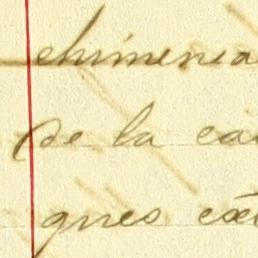 chimenea
de la ca
ques